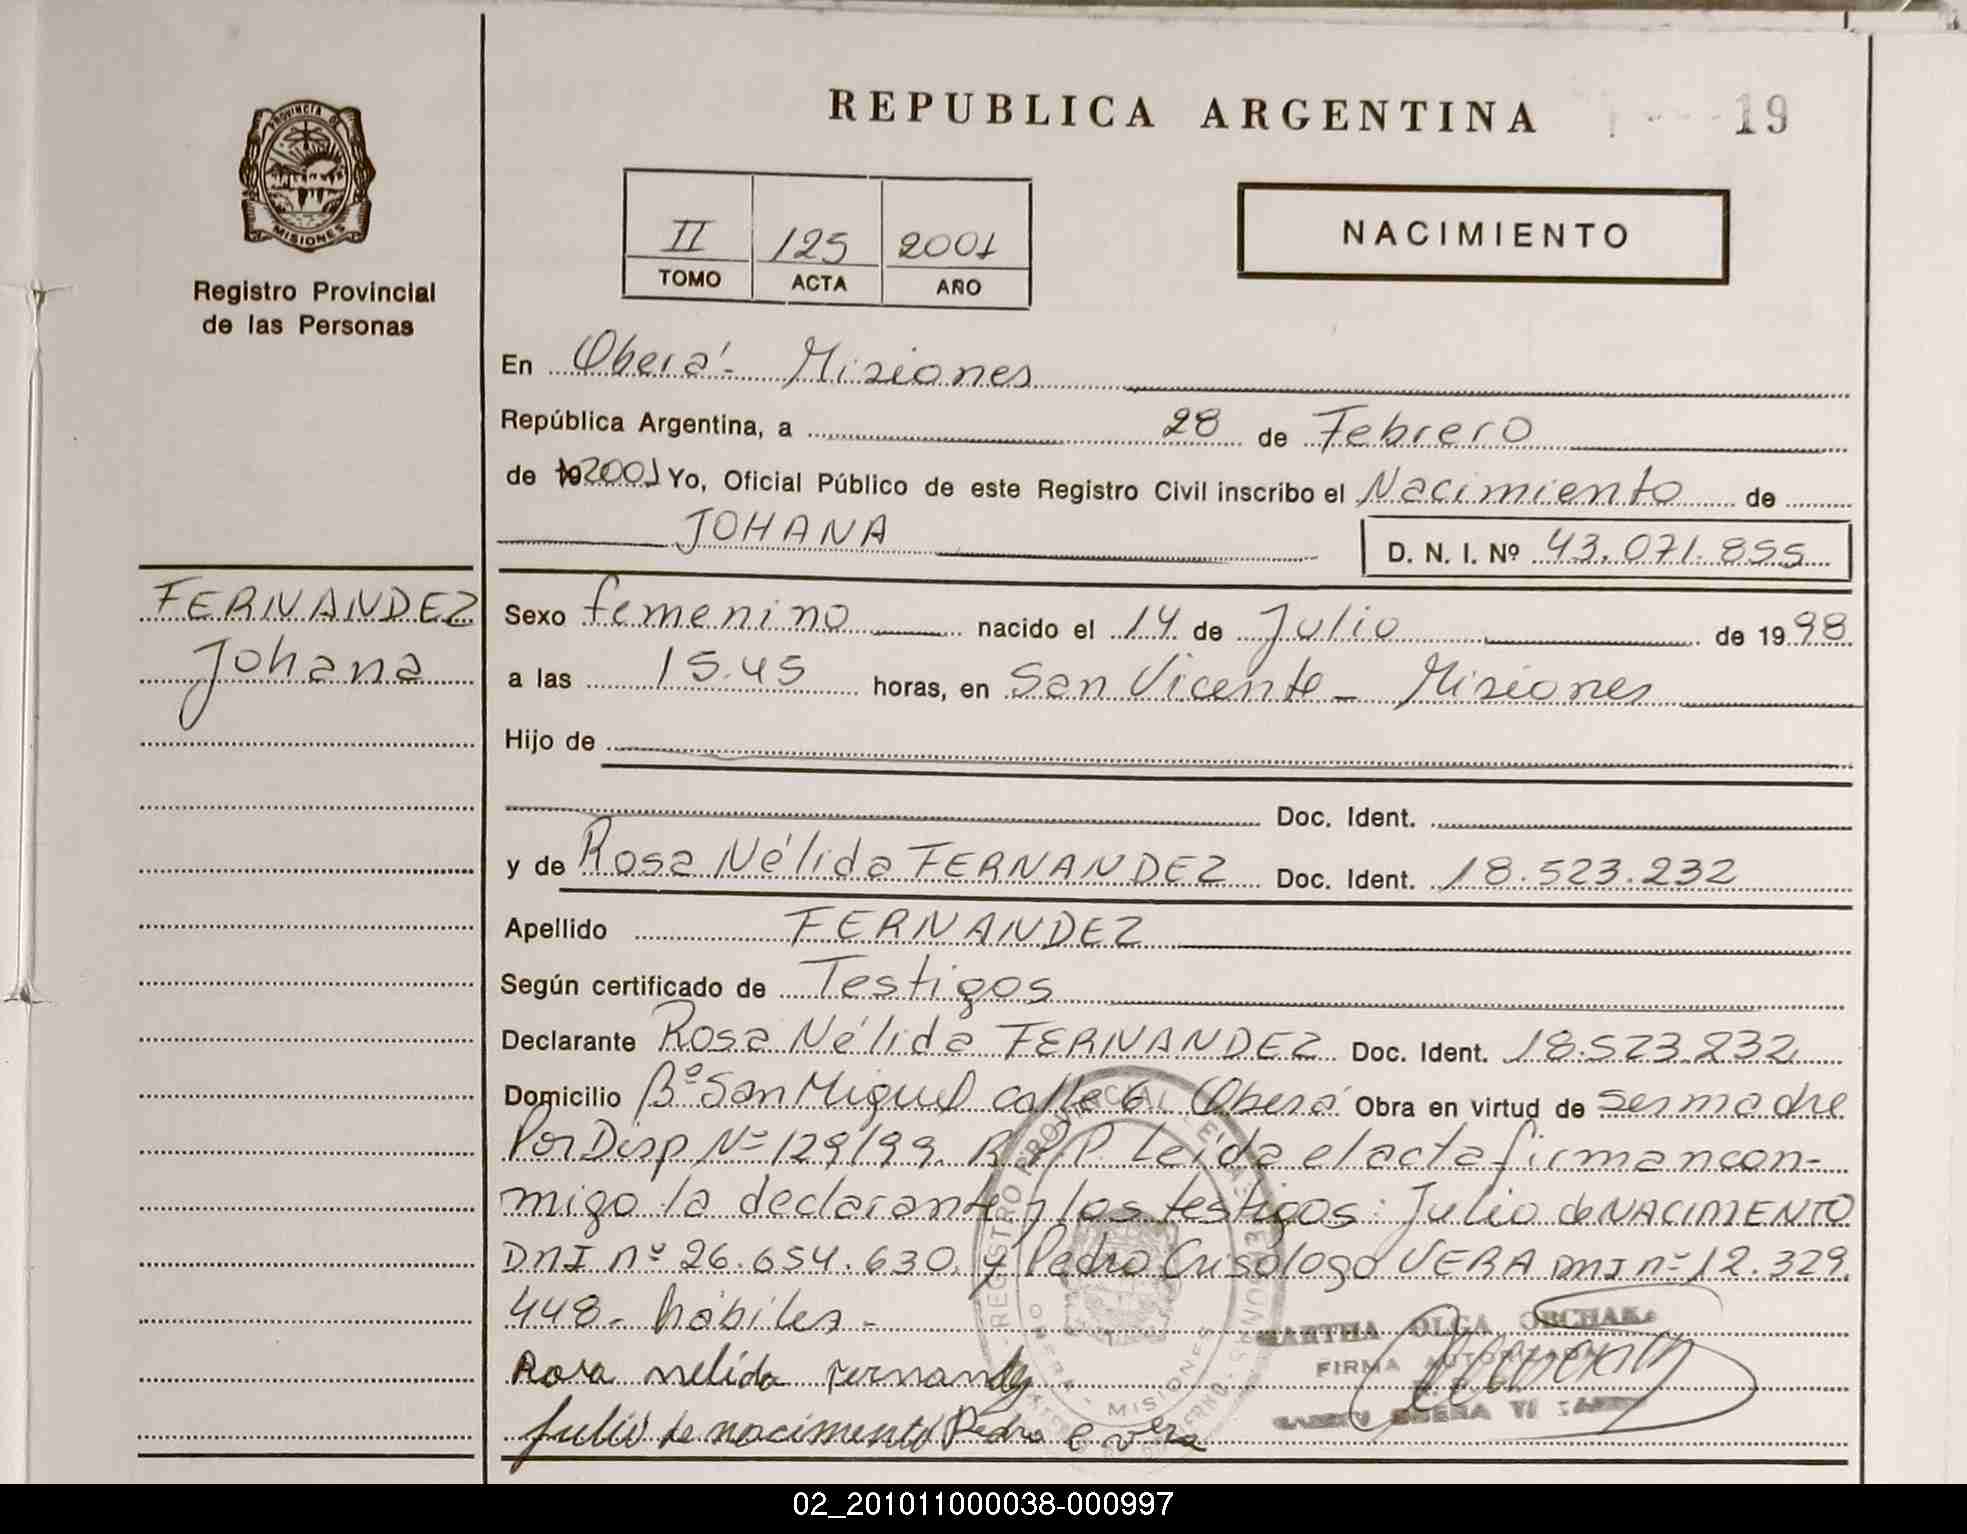 REPUBLICA ARGENTINA
19
PROVINCIA DE
MISIONES
Registro Provincial
de las Personas
II 125 2001
TOMO ACTA AÑO
NACIMIENTO
En Oberá - Misiones
República Argentina, a 28 de Febrero
de 19 2001 Yo, Oficial Público de este Registro Civil inscribo el Nacimiento de
JOHANA D. N. I. Nº 43.071.855
FERNANDEZ
Johana
Sexo femenino nacido el 14 de Julio de 19 98
a las 15.45 horas, en San Vicente - Misiones
Hijo de
Doc. Ident.
y de Rosa Nélida FERNANDEZ Doc. Ident. 18.523.232
Apellido FERNANDEZ
Según certificado de Testigos
Declarante Rosa Nélida FERNANDEZ Doc. Ident. 18.523.232
Domicilio Bº San Miguel calle 6. Oberá Obra en virtud de ser madre
Por Disp Nº 129/99. R.P.P. Leída el acta firman con-
migo la declarante y los testigos: Julio de NACIMENTO
DNI nº 26.654.630. y Pedro Crisólogo VERA DNI nº 12.329.
448 - hábiles -
MARTHA OLGA
FIRMA AUTORIZADA
Rosa nelida Fernandez
Julio de nacimento Pedro C vera
REGISTRO PROVINCIAL
OBERA - MISIONES
02_201011000038-000997